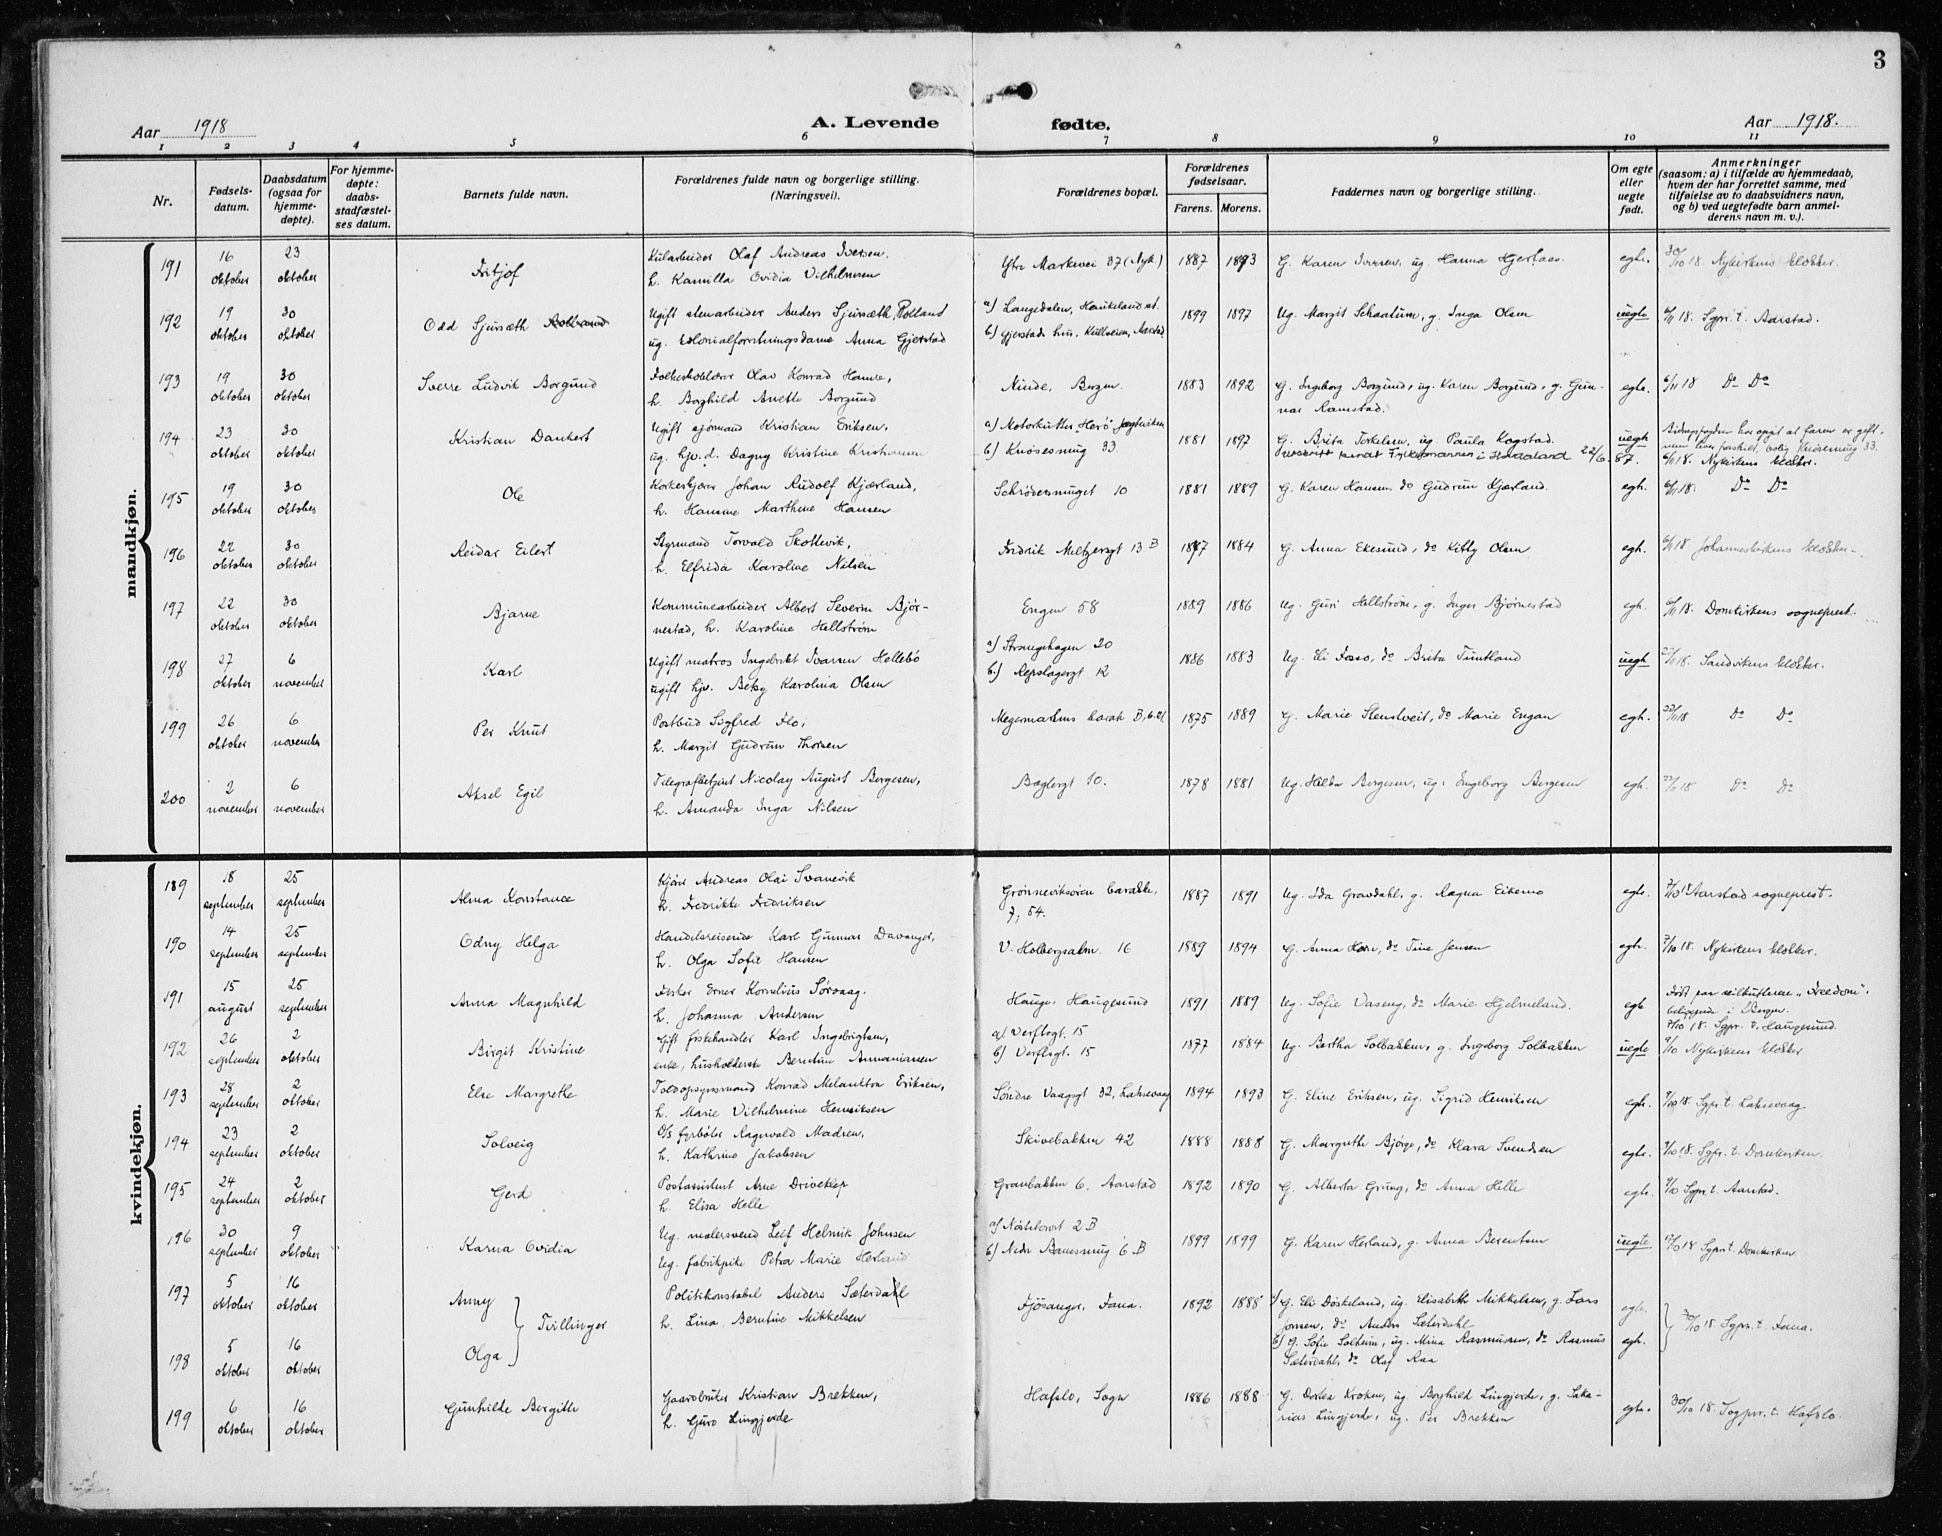 3
Aar 1918
A. Levende
fødte.
Aar 1918.
1 2 3 4 5 6 7 8 9 10 11
Nr.
Fødsels-
datum.
Daabsdatum
(ogsaa for
hjemme-
døpte).
For hjemme-
døpte:
daabs-
stadfæstel-
ses datum.
Barnets fulde navn.
Forældrenes fulde navn og borgerlige stilling.
(Næringsvei).
Forældrenes bopæl.
Forældrenes
fødselsaar.
Farens. Morens.
Faddernes navn og borgerlige stilling.
Om egte
eller
uegte
født.
Anmerkninger
(saasom: a) i tilfælde av hjemmedaab,
hvem der har forrettet samme, med
tilføielse av to daabsvidners navn,
og b) ved uegtefødte barn anmel-
derens navn m. v.).
mandkjøn.
191 16 oktober 23 oktober Fritjof
Kularbeider Olaf Andreas Iversen.
h. Kamilla Ovidia Vilhelmsen
Ytre Markevei 37 (Nyk.) 1887 1893 G. Karen Iversen, ug. Hanna Hjertaas egte. 30/10 18. Nykirkens klokker.
192 19 oktober 30 oktober Odd Sjursæth
Ugift stenarbeider Anders Sjursæth, Rolland
ug. kolonialforretningsdame Anna Gjerstad
a) Langedalen, Haukeland st.
b) Gjerstads hus, Aarstad.
1899 1897 Ug. Margit Schaatum, g. Inga Olsen uegte 6/11 18. Sgpr. t. Aarstad.
193 19 oktober 30 oktober Sverre Ludvik Borgund
Folkeskolelærer Olav Konrad Hamre,
h. Borghild Anette Borgund
Ninde, Bergen. 1883 1892 G. Ingeborg Borgund, ug. Karen Borgund, g. Gun-
nar Ramstad. egte. 6/11 18 Do Do
194 23 oktober 30 oktober Kristian Dankert
Ugift sjømand Kristian Eriksen,
ug. hjv. d. Dagny Kristine Kristiansen
a) Motorkutter Herö
b) Knøsesmug 33
1881 1897 G. Brita Terkelsen, ug. Paula Kogstad. uegte
Fylkesmannen i Hordaland 22/6-87.
Bidragsfogden har opgit at faren er gift,
6/11 18. Nykirkens klokker.
195 19 oktober 30 oktober Ole
Korkeskjærer Johan Rudolf Kjærland,
h. Hansine Marthine Hansen
Schrødersmuget 10 1881 1889 G. Karen Hansen, do Gudrun Kjærland. egte. 6/11 18. Do Do
196 22 oktober 30 oktober Reidar Eilert
Styrmand Torvald Skottevik,
h. Elfrida Karoline Nilsen
Fredrik Meltzersgt 13 B 1887 1884 G. Anna Ekesund, do Kitty Olsen egte. 6/11 18 Johanneskirkens klokker.
197 22 oktober 30 oktober Bjarne
Kommunearbeider Albert Severin Bjør-
nestad, h. Karoline Hellstrøm
Engen 58 1889 1886 Ug. Guri Hellstrøm, g. Inger Bjørnestad egte. 6/11 18. Domkirkens sogneprest.
198 27 oktober 6 november Karl
Ugift matros Ingebrikt Ivarsen Hellebø
ugift hjv. Betsy Karolina Olsen
a) Strangehagen 20
b) Repslagergt 12
1886 1883 Ug. Eli Fosso, do Brita Timtland uegte 22/11 18. Sandvikens klokker.
199 26 oktober 6 november Per Knut
Postbud Sigfred Flo,
h. Margit Gudrun Thorsen
Megermarkens barak B, 6. et. 1875 1889 G. Marie Stenstveit, do Marie Engan egte. 22/11 18 Do Do
200 2 november 6 november Aksel Egil
Telegrafbetjent Nicolay August Bergesen,
h. Amanda Inga Nilsen
Baglergt 10. 1878 1881 Ug. Hilda Bergesen, ug. Ingeborg Bergesen egte. 22/11 18 Do Do
kvindekjøn.
189 18 september 25 september Alma Konstance
Kjører Andreas Olai Svanevik
h. Fredrikke Fredriksen
Grønneviksøren barakke,
7, 54.
1887 1891 Ug. Ida Gravdahl, g. Ragna Eikemo egte. 7/10 18 Aarstad sogneprest.
190 14 september 25 september Odny Helga
Handelsreisende Karl Gunnar Davanger,
h. Olga Sofie Hansen
V. Holbergsalm. 16 1889 1894 G. Anna Horn, do Tine Jensen egte. 7/10 18. Nykirkens klokker.
191 15 august 25 september Anna Magnhild
Fisker Erner Kornelius Sørvaag,
h. Johanna Andersen
Hauge, Haugesund 1891 1889 Ug. Sofie Vaseng, do Marie Hjelmeland. egte
Født paa seilkutteren „Freedom",
beliggende i Bergen.
7/10 18. Sgpr. t. Haugesund.
192 26 september 2 oktober Birgit Kristine
Gift fiskehandler Karl Ingebrigtsen,
enke, husholderske Berntine Annaniassen
a) Verftsgt. 15
b) Verftsgt. 15
1877 1884 Ug. Bertha Solbakken, g. Ingeborg Solbakken uegte 9/10 Nykirkens klokker
193 28 september 2 oktober Else Margrethe
Toldopsynsmand Konrad Melankton Eriksen,
h. Marie Vilhelmine Henriksen
Søndre Vaagsgt 32, Laksevaag 1894 1893 G. Eline Eriksen, ug. Sigrid Henriksen egte. 9/10 18. Sgpr. t. Laksevaag.
194 23 september 2 oktober Solveig
D/S fyrbøter Ragnvald Madsen,
h. Kathrine Jakobsen
Skivebakken 42 1888 1888 G. Margrethe Bjørge, do Klara Svendsen egte. 9/10 18. Sgpr. t. Domkirken.
195 24 september 2 oktober Gerd
Postassistent Arne Driveklep
h. Elisa Helle
Granbakken 6. Aarstad 1892 1890 G. Alberta Grung, do Anna Helle egte. 9/10 Sgpr. t. Aarstad.
196 30 september 9 oktober Karna Ovidia
Ug. malersvend Leif Helmik Johnsen
Ug. fabrikpike Petra Marie Herland
a) Nøstetorvet 2 B
b) Nedre Banesmug 6 B
1899 1899 G. Karen Herland, g. Anna Berentsen uegte 17/10 18 Sgpr. t. Domkirken.
197 5 oktober 16 oktober Anny
Tvillinger
198 5 oktober 16 oktober Olga
Politikonstabel Anders Sæterdahl
h. Lina Berntine Mikkelsen
Fjøsanger, Fana. 1892 1888
a) G. Eli Døskeland, ug. Elisabeth Mikkelsen, g. Lars
Jonsen, do Anders Sæterdahl egte.
b) G. Sofie Solheim, ug. Mina Rasmussen, do Rasmus
Sæterdahl, do Olaf Raa egte.
30/10 18. Sgpr. t. Fana.
199 6 oktober 16 oktober Gunhilde Bergitte
Gaardbruker Kristian Brekken,
h. Guro Lingjerde
Hafslo, Sogn 1886 1888 G. Dortea Kroken, ug. Borghild Lingjerde, g. Saka-
rias Lingjerde, ug. Per Brekken egte. 30/10 18. Sogpr. t. Hafslo.